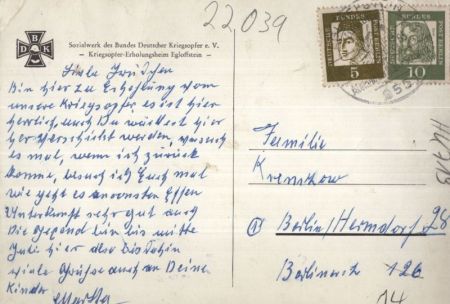 B
D K
22,039
Sozialwerk des Bundes Deutscher Kriegsopfer e. V.
– Kriegsopfer-Erholungsheim Egloffstein –
DEUTSCHE BUNDESPOST BERLIN
5
DEUTSCHE BUNDESPOST BERLIN
10
Liebe
Bin hier zu Erholung vom
unsere Kriegsopfer es ist hier
herrlich, auch Du würdest hier
werden,
es mal, wenn ich zurück
komme, besuch ich Euch mal
wie geht es Essen
Unterkunft sehr gut auch
Die Gegend bin bis mitte
Juli hier also bis dahin
viele Grüße auch an Deine
Kinder
Familie
Krenzkow
1 Berlin/Hermsdorf 28
Berlinerstr 126
14